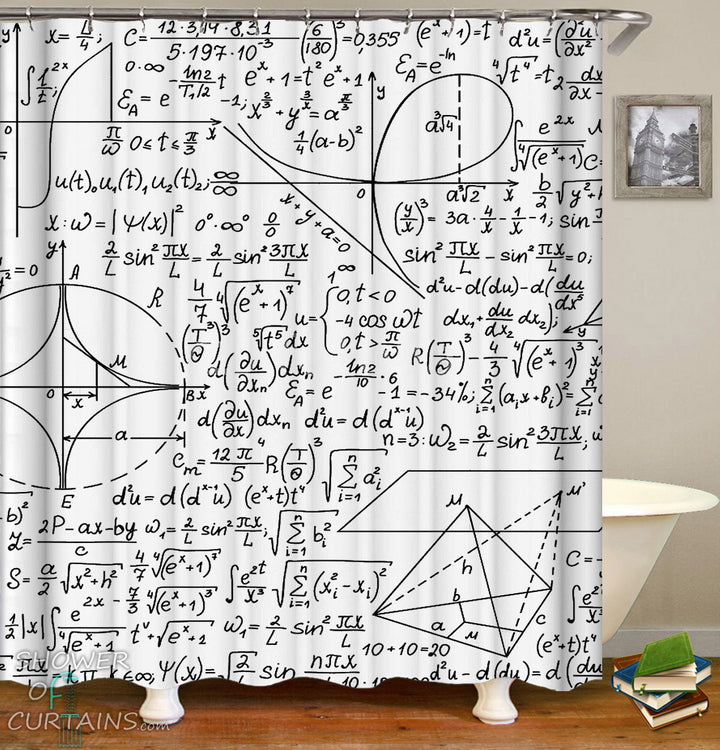 x = L/4;
C = 12·3,14·8,31 / 5·197·10⁻³
(6/180)³ = 0,355
(eˣ+1) = t
d²u = (∂²u/∂x²
∫ 1/t²ˣ;
0·∞
ℰ_A = e^(-ln2/T₁/₂ t)
eˣ+1 = t² eˣ+1
ℰ_A = e^(-ln
⁴√t⁴ = t₂
-1; x^(2/3) + y^(3/x) = a^(π/3)
y
y
a³√4
∫ e²ˣ/⁴√(eˣ+1)
C =
0
π/ω
0 ≤ t ≤ π/3
x
1/4(a-b)²
u(t)₀u₁(t)₁u₂(t)₂; ∞/∞
0
a³√2
x
b/2 √y²+
x:ω = |Ψ(x)|² 0°·∞° 0/0
x+y+a=0
(y/x)³ = 3a·4/x - 1/x - 1; sin
y
2/L sin² πx/L = 2/L sin² 3πx/L
sin² πx/L - sin² πx/L = 0;
= 0
A
R
4/7 ⁴√(eˣ+1)⁷
1^∞
d²u-d(du)-d(du/dx⁵
u = { 0, t<0
-4 cos ωt
0, t > π/ω
dx₁ + du/dx₂ dx₂);
(T/Θ)³)³
⁵√t⁵ dx
R(T/Θ)³ - 4/3 ⁴√(eˣ+1)³
M
d(∂u/∂xₙ)dxₙ
ℰ_A = e^(-ln2/10 · 6) -1 = -34%;
Σ(aᵢx+bᵢ)² = Σ
n
i=1
0
x
B x
a
d(∂u/∂x)dxₙ d²u = d(dˣ⁻¹u)
n=3: ω₂ = 2/L sin² 3πx/L;
Cm = 12π/5 R(T/Θ)³
√Σ aᵢ²
n
i=1
E
d²u = d(dˣ⁻¹u) (eˣ+t)t⁴
M
M'
-b)²
Z = 2P-ax-by / c
ω₁ = 2/L sin² πx/L;
√Σ bᵢ²
n
i=1
h
C = -
S = a/2 √x²+h²
4/7 ⁴√(eˣ+1)⁷
∫ e²ᵗ/x³
√Σ(xᵢ²-xᵢ)²
n
i=1
b
∫ e²/x³
e²ˣ - 7/3 ⁴√(eˣ+1)³
a
M
C
1/2|x| ∫ ⁴√eˣ+1
tᵛ+√eˣ+2
ω₁ = 2/L sin² πx/L
(eˣ+t)t⁴
10+10=20
≤∞; Ψ(x) = √2/L sin nπx/L
d²u-d(du) = d(du
SHOWER
OF
CURTAINS.com